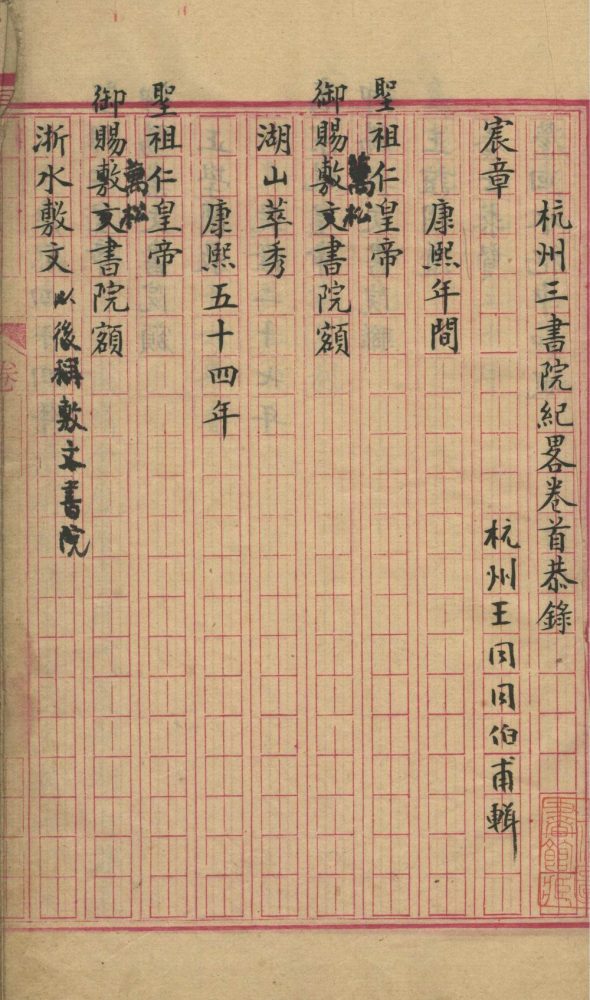 杭州三書院紀畧卷首恭錄
宸章　杭州王同同伯甫輯
康熙年間
聖祖仁皇帝
御賜敷文萬松書院額
湖山萃秀
康熙五十四年
聖祖仁皇帝
御賜敷文萬松書院額
浙水敷文以後稱敷文書院